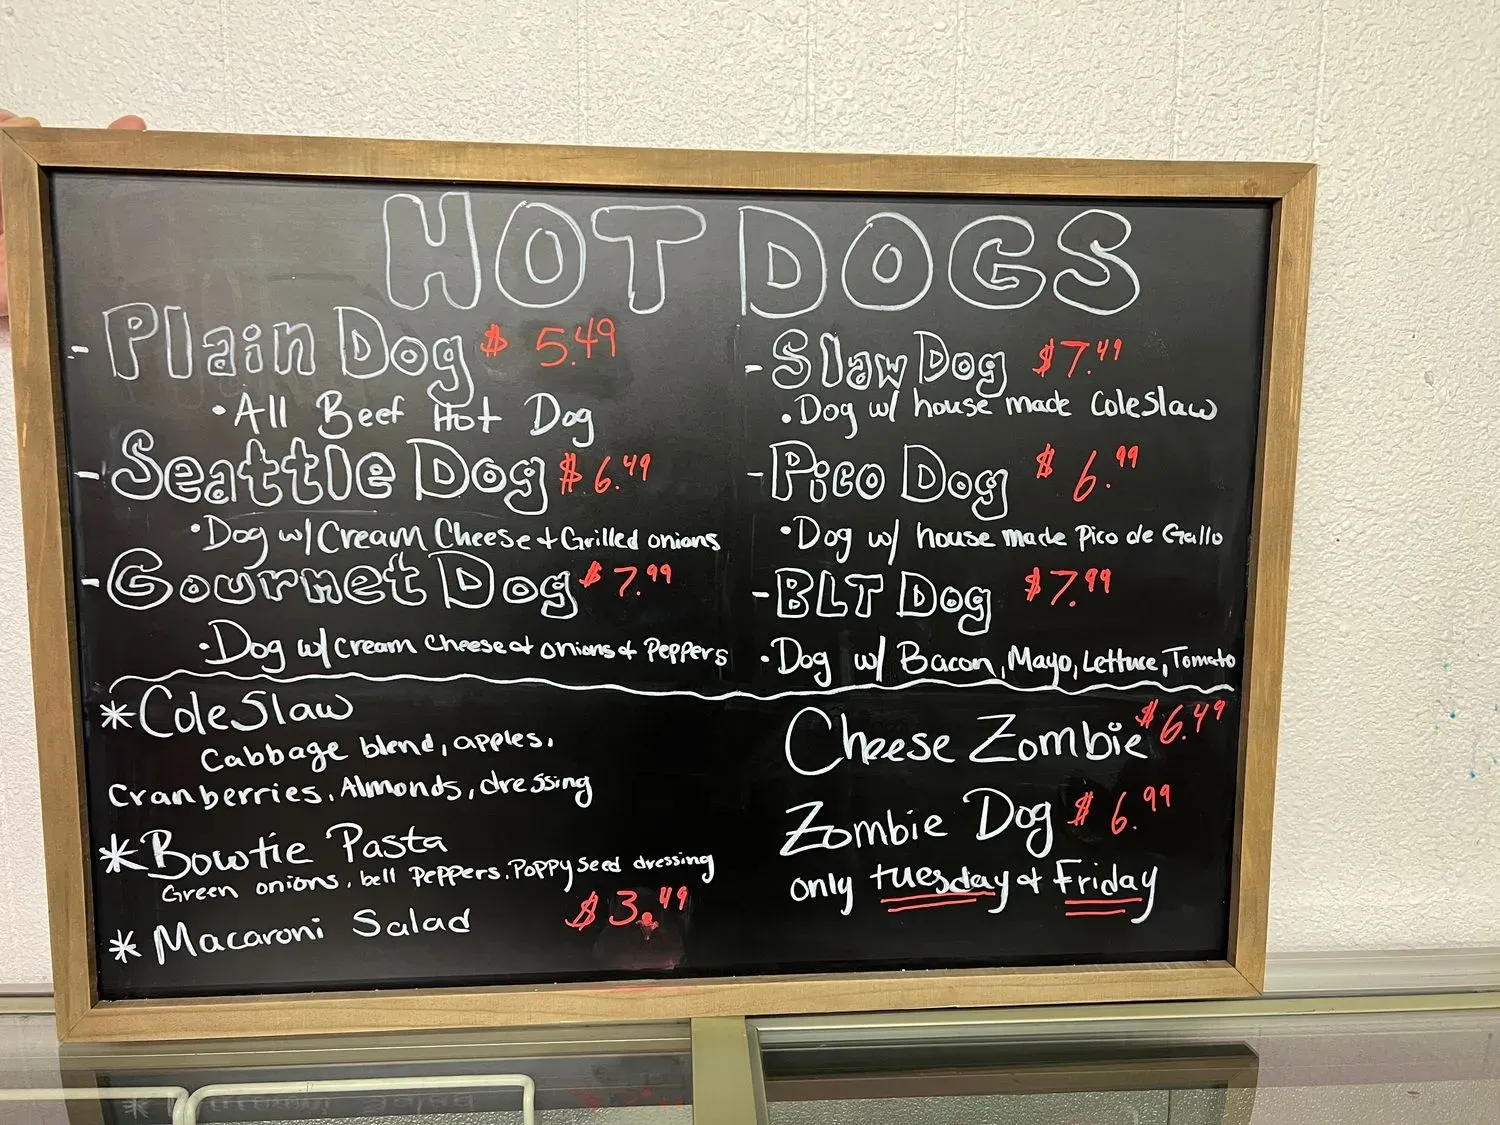 HOT DOGS
- Plain Dog $ 5.49
• All Beef Hot Dog
- Seattle Dog $ 6.49
• Dog w/ Cream Cheese + Grilled onions
- Gourmet Dog $ 7.99
• Dog w/ Cream Cheese + onions + Peppers
- Slaw Dog $ 7.49
• Dog w/ house made Coleslaw
- Pico Dog $ 6.99
• Dog w/ house made Pico de Gallo
- BLT Dog $ 7.99
• Dog w/ Bacon, Mayo, Lettuce, Tomato
* Coleslaw
Cabbage blend, apples,
Cranberries, Almonds, dressing
* Bowtie Pasta
Green onions, bell Peppers, Poppyseed dressing
* Macaroni Salad $ 3.49
Cheese Zombie $ 6.49
Zombie Dog $ 6.99
only tuesday + Friday